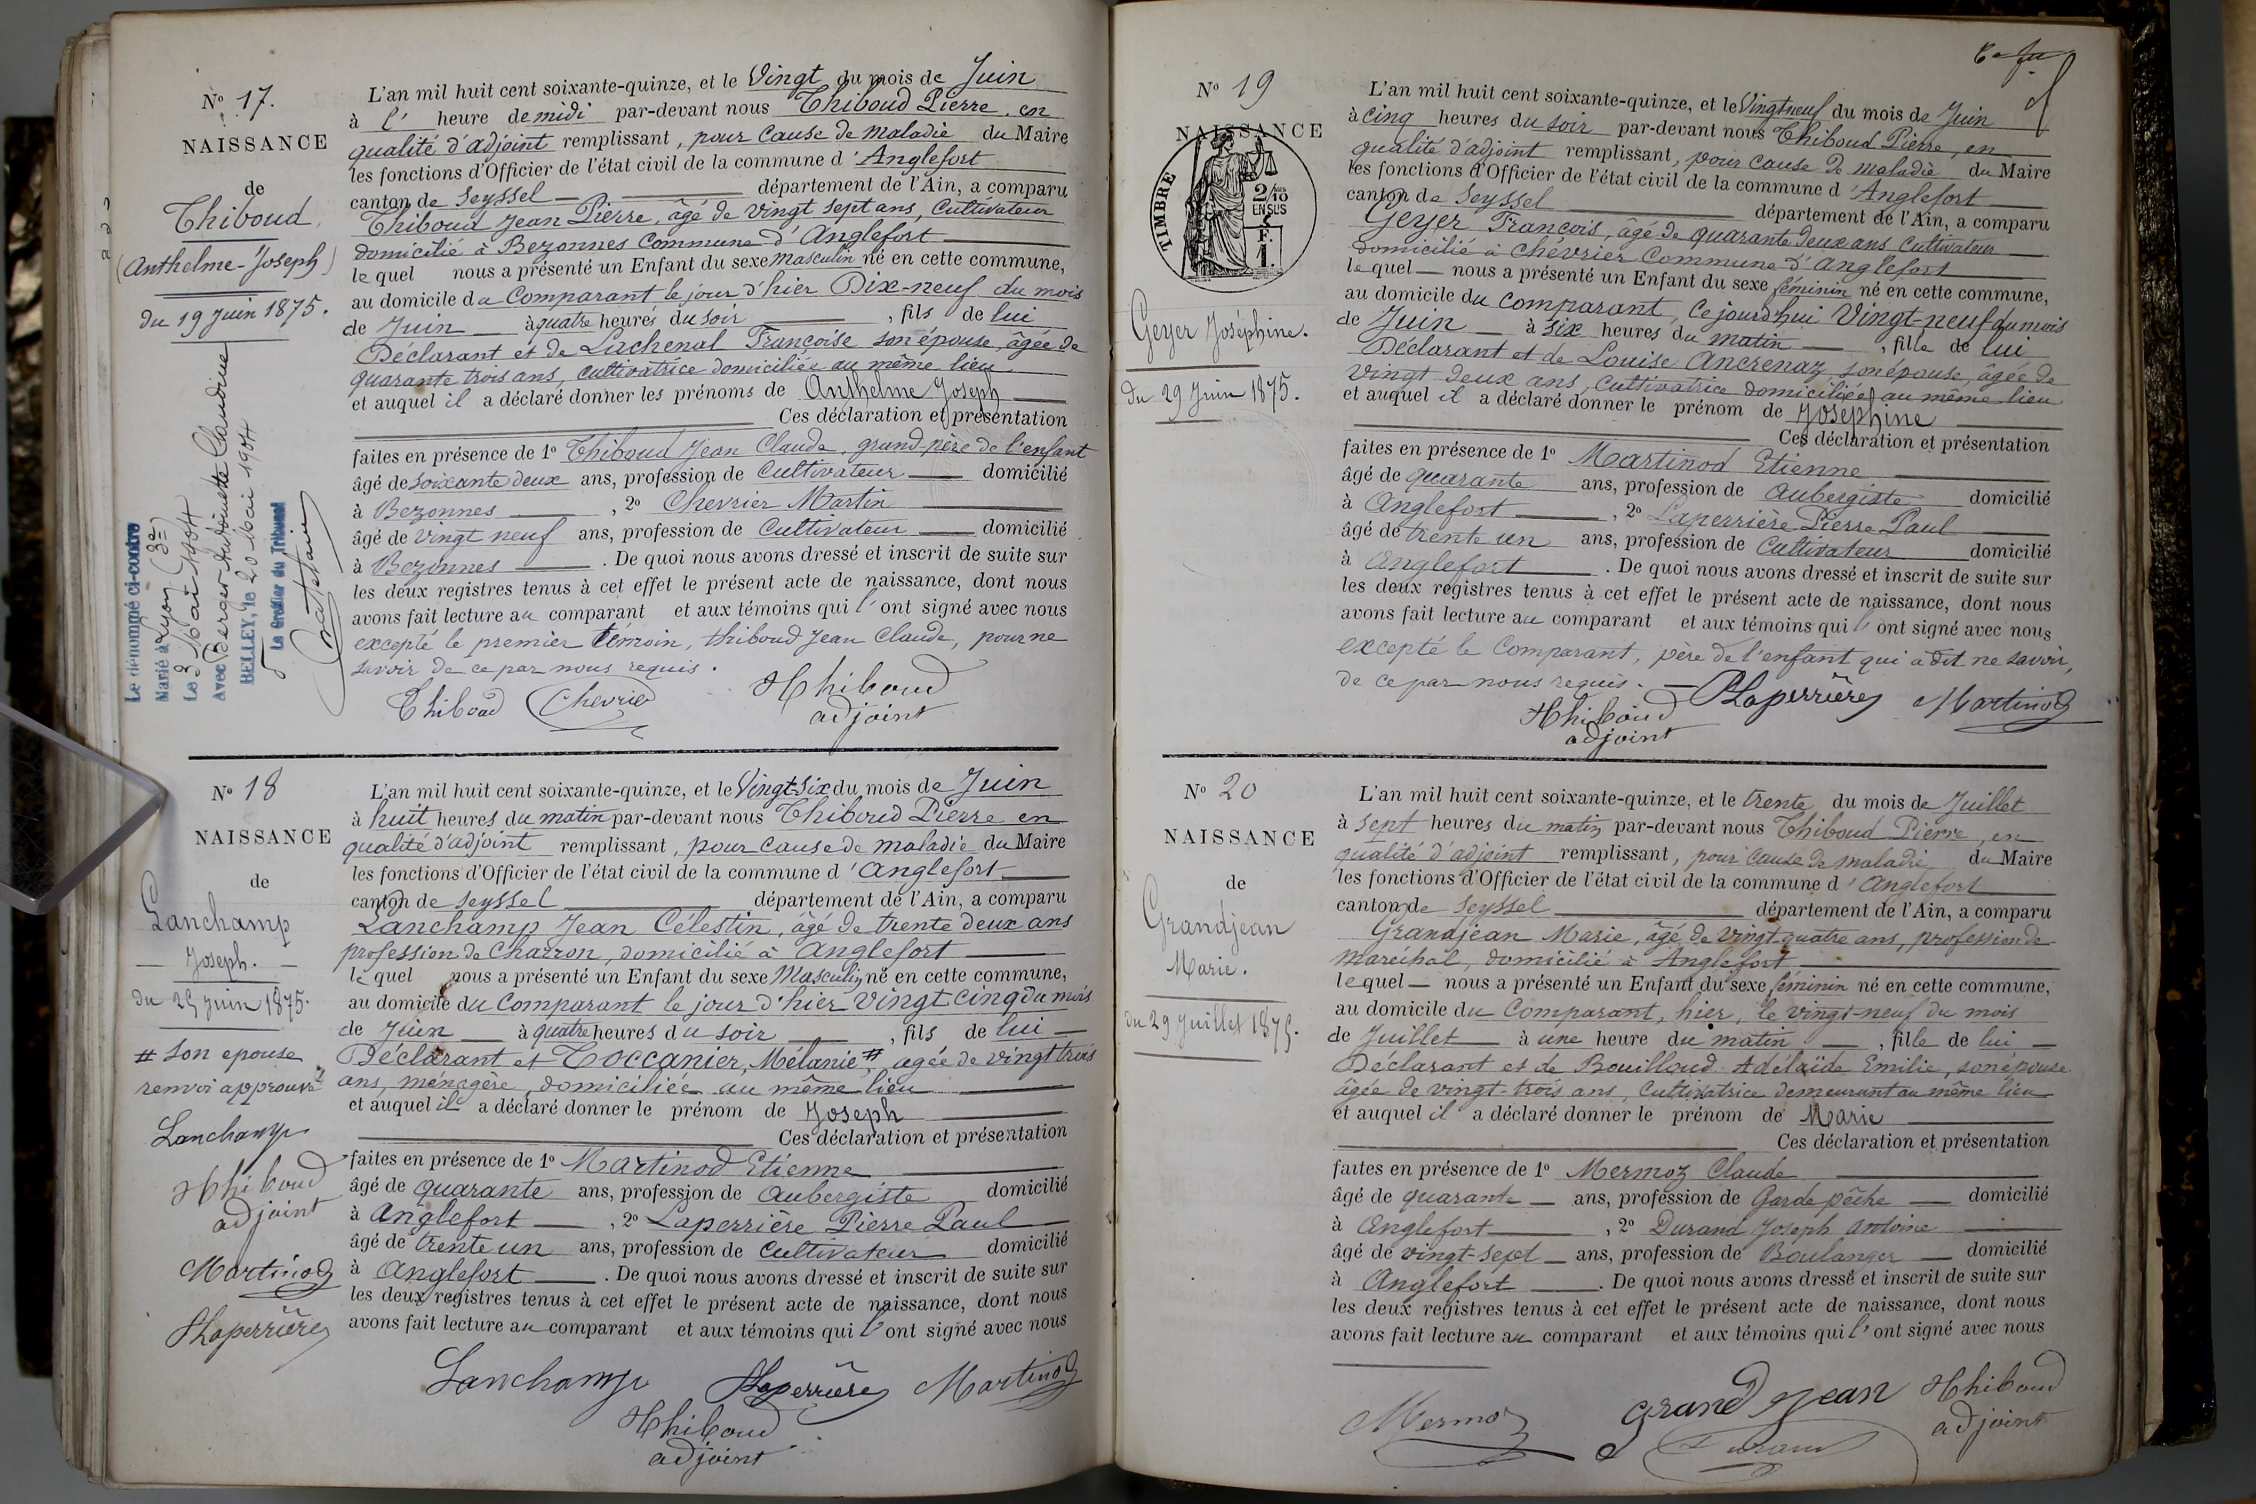 No 17.
NAISSANCE
de
Thiboud
(Anthelme-Joseph)
du 19 juin 1875.
Le dénommé ci-contre
Marié à Lyon (3e)
Le 3 Mai 1904
avec Berger Antoinette Claudine
BELLEY, le 20 Mai 1904
Le Greffier du Tribunal
L'an mil huit cent soixante-quinze, et le Vingt du mois de Juin
à l' heure de midi par-devant nous Thiboud Pierre, en
qualité d'adjoint remplissant, pour cause de maladie du Maire
les fonctions d'Officier de l'état civil de la commune d'Anglefort
canton de Seyssel département de l'Ain, a comparu
Thiboud Jean Pierre, âgé de vingt sept ans, Cultivateur
domicilié à Bezonnes Commune d'Anglefort
lequel nous a présenté un Enfant du sexe masculin né en cette commune,
au domicile du Comparant le jour d'hier Dix-neuf du mois
de Juin à quatre heures du soir, fils de lui
Déclarant et de Lachenal Françoise son épouse, âgée de
quarante trois ans, cultivatrice domiciliée au même lieu
et auquel il a déclaré donner les prénoms de Anthelme Joseph
Ces déclaration et présentation
faites en présence de 1o Thiboud Jean Claude, grand-père de l'enfant
âgé de soixante deux ans, profession de Cultivateur domicilié
à Bezonnes, 2o Chevrier Martin
âgé de vingt neuf ans, profession de Cultivateur domicilié
à Bezonnes. De quoi nous avons dressé et inscrit de suite sur
les deux registres tenus à cet effet le présent acte de naissance, dont nous
avons fait lecture au comparant et aux témoins qui l'ont signé avec nous
excepté le premier témoin, thiboud Jean Claude, pour ne
savoir de ce par nous requis.
Thiboud Chevrier Thiboud
adjoint
No 18
NAISSANCE
de
Lanchamp
Joseph.
du 25 Juin 1875.
# son epouse
renvoi approuvé
Lanchamp
Thiboud
adjoint
Martinod
PLaperrière
L'an mil huit cent soixante-quinze, et le Vingt-six du mois de Juin
à huit heures du matin par-devant nous Thiboud Pierre en
qualité d'adjoint remplissant, pour cause de maladie du Maire
les fonctions d'Officier de l'état civil de la commune d'Anglefort
canton de Seyssel département de l'Ain, a comparu
Lanchamp Jean Célestin, âgé de trente deux ans
profession de Charron, domicilié à Anglefort
lequel nous a présenté un Enfant du sexe Masculin né en cette commune,
au domicile du Comparant le jour d'hier vingt cinq du mois
de Juin à quatre heures du soir, fils de lui
Déclarant et Toccanier, Mélanie #, agée de vingt trois
ans, ménagère, domiciliée au même lieu
et auquel il a déclaré donner le prénom de Joseph
Ces déclaration et présentation
faites en présence de 1o Martinod Etienne
âgé de quarante ans, profession de aubergiste domicilié
à Anglefort, 2o Laperrière Pierre Paul
âgé de trente un ans, profession de Cultivateur domicilié
à Anglefort. De quoi nous avons dressé et inscrit de suite sur
les deux registres tenus à cet effet le présent acte de naissance, dont nous
avons fait lecture au comparant et aux témoins qui l'ont signé avec nous
Lanchamp PLaperrière Martinod
Thiboud
adjoint
No 19
NAISSANCE
TIMBRE
2/10
EN SUS
F.
1.
Geyer Joséphine.
du 29 Juin 1875.
L'an mil huit cent soixante-quinze, et le Vingt neuf du mois de Juin
à cinq heures du soir par-devant nous Thiboud Pierre, en
qualité d'adjoint remplissant, pour cause de maladie du Maire
les fonctions d'Officier de l'état civil de la commune d'Anglefort
canton de Seyssel département de l'Ain, a comparu
Geyer François, âgé de quarante deux ans Cultivateur
domicilié à Chévrier Commune d'Anglefort
lequel nous a présenté un Enfant du sexe féminin né en cette commune,
au domicile du comparant, Ce jourd'hui Vingt-neuf du mois
de Juin à six heures du matin, fille de lui
Déclarant et de Louise Ancrenaz, son épouse, âgée de
Vingt deux ans, Cultivatrice domiciliée au même lieu
et auquel il a déclaré donner le prénom de Joséphine
Ces déclaration et présentation
faites en présence de 1o Martinod Etienne
âgé de quarante ans, profession de aubergiste domicilié
à Anglefort, 2o Laperrière Pierre Paul
âgé de trente un ans, profession de Cultivateur domicilié
à Anglefort. De quoi nous avons dressé et inscrit de suite sur
les deux registres tenus à cet effet le présent acte de naissance, dont nous
avons fait lecture au comparant et aux témoins qui l'ont signé avec nous
excepté le Comparant, père de l'enfant qui a dit ne savoir,
de ce par nous requis. PLaperrière Martinod
Thiboud
adjoint
No 20
NAISSANCE
de
Grandjean
Marie.
du 29 Juillet 1875.
L'an mil huit cent soixante-quinze, et le trente du mois de Juillet
à sept heures du matin par-devant nous Thiboud Pierre, en
qualité d'adjoint remplissant, pour cause de maladie du Maire
les fonctions d'Officier de l'état civil de la commune d'Anglefort
canton de Seyssel département de l'Ain, a comparu
Grandjean Marie, âgé de vingt quatre ans, profession de
Marechal, domicilié à Anglefort
lequel nous a présenté un Enfant du sexe féminin né en cette commune,
au domicile du Comparant, hier, le vingt-neuf du mois
de Juillet à une heure du matin, fille de lui
Déclarant et de Bouilloud Adélaïde Emilie, son épouse
âgée de vingt-trois ans, Cultivatrice demeurant au même lieu
et auquel il a déclaré donner le prénom de Marie
Ces déclaration et présentation
faites en présence de 1o Mermoz Claude
âgé de quarante ans, profession de Garde pêche domicilié
à Anglefort, 2o Durand Joseph Antoine
âgé de vingt-sept ans, profession de Boulanger domicilié
à Anglefort. De quoi nous avons dressé et inscrit de suite sur
les deux registres tenus à cet effet le présent acte de naissance, dont nous
avons fait lecture au comparant et aux témoins qui l'ont signé avec nous
Mermoz Grand Jean Thiboud
Durand adjoint